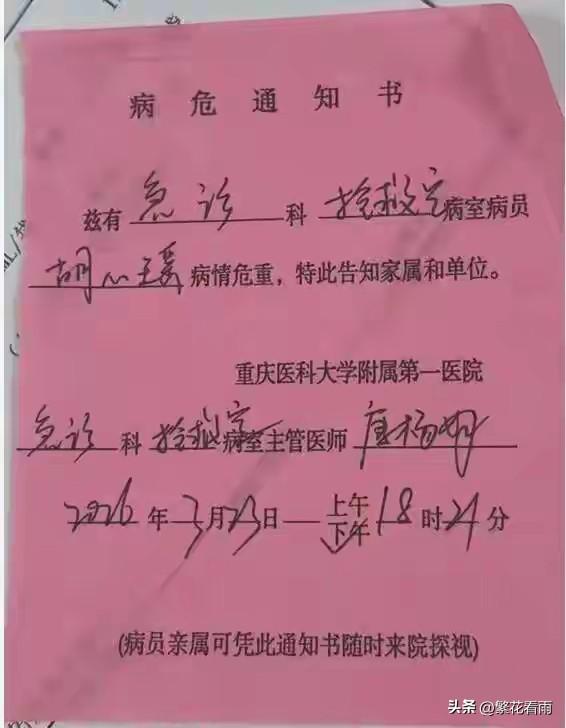 病危通知书
兹有 急诊 科 抢救室 病室病员
胡心瑗 病情危重，特此告知家属和单位。
重庆医科大学附属第一医院
急诊 科 抢救室 病室主管医师
2026 年 3 月 23 日 上午
下午 18 时 24 分
(病员亲属可凭此通知书随时来院探视)
头条 @繁花看雨